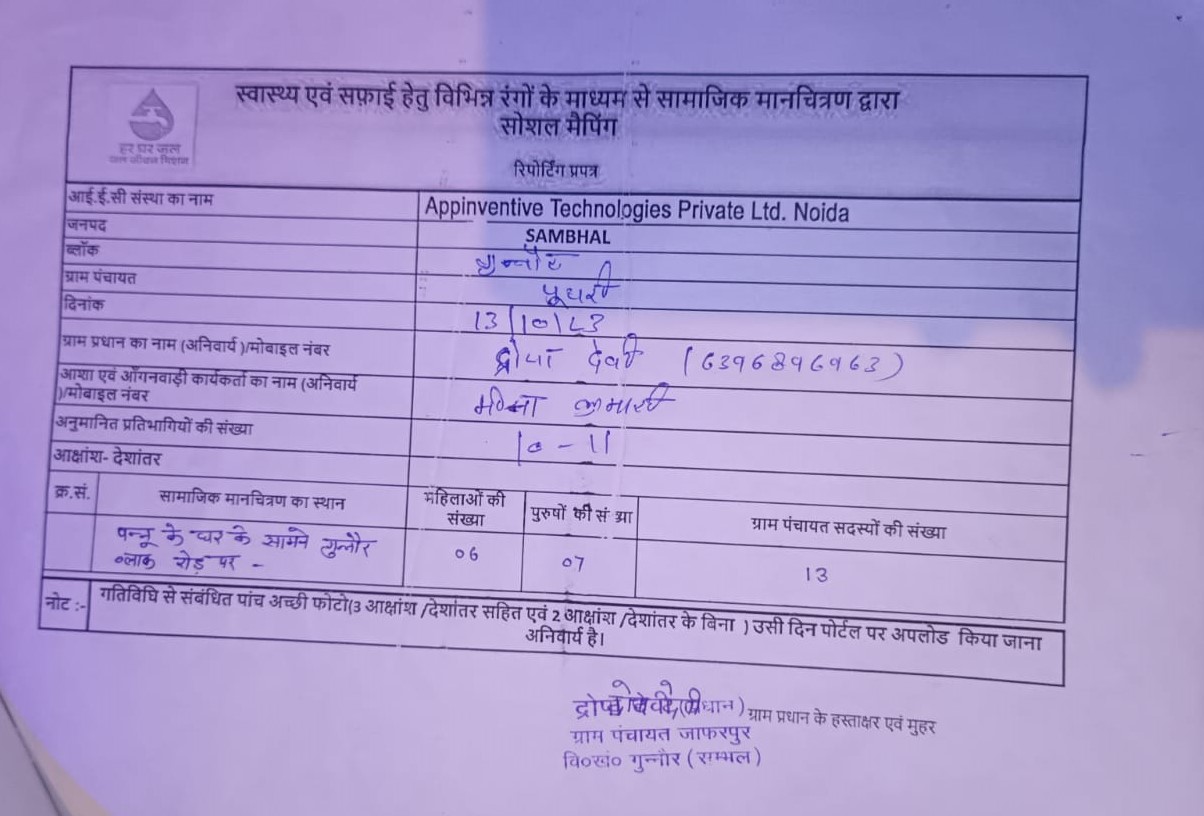 स्वास्थ्य एवं सफ़ाई हेतु विभिन्न रंगों के माध्यम से सामाजिक मानचित्रण द्वारा
सोशल मैपिंग
हर घर जल
जल जीवन मिशन
रिपोर्टिंग प्रपत्र
आई.ई.सी संस्था का नाम Appinventive Technologies Private Ltd. Noida
जनपद SAMBHAL
ब्लॉक गुन्नौर
ग्राम पंचायत
दिनांक 13/10/23
ग्राम प्रधान का नाम (अनिवार्य )/मोबाइल नंबर देवी
आशा एवं आँगनवाड़ी कार्यकर्ता का नाम (अनिवार्य
)/मोबाइल नंबर कुमारी
अनुमानित प्रतिभागियों की संख्या 10-11
आक्षांश- देशांतर
क्र.सं. सामाजिक मानचित्रण का स्थान महिलाओं की संख्या पुरुषों की सं ख्या ग्राम पंचायत सदस्यों की संख्या
पन्नू के घर के सामने गुन्नौर
ब्लाक रोड़ पर - 06 07 13
नोट :- गतिविधि से संबंधित पांच अच्छी फोटो(3 आक्षांश /देशांतर सहित एवं 2 आक्षांश /देशांतर के बिना ) उसी दिन पोर्टल पर अपलोड किया जाना
अनिवार्य है।
ग्राम प्रधान के हस्ताक्षर एवं मुहर
ग्राम पंचायत जाफरपुर
वि०खं० गुन्नौर (सम्भल)